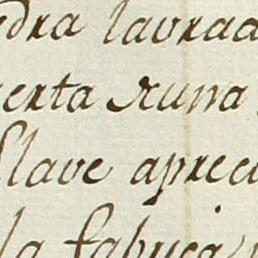 edra lavrada
erta runa
clave apreci
la fabrica,